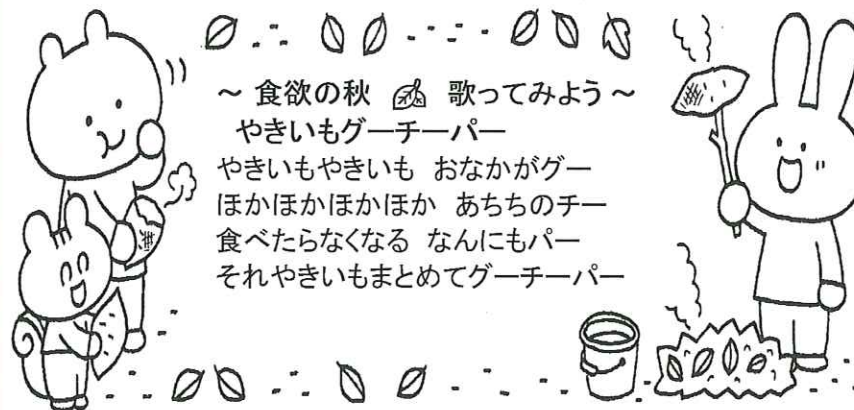 ～ 食欲の秋 歌ってみよう ～
やきいもグーチーパー
やきいもやきいも おなかがグー
ほかほかほかほか あちちのチー
食べたらなくなる なんにもパー
それやきいもまとめてグーチーパー